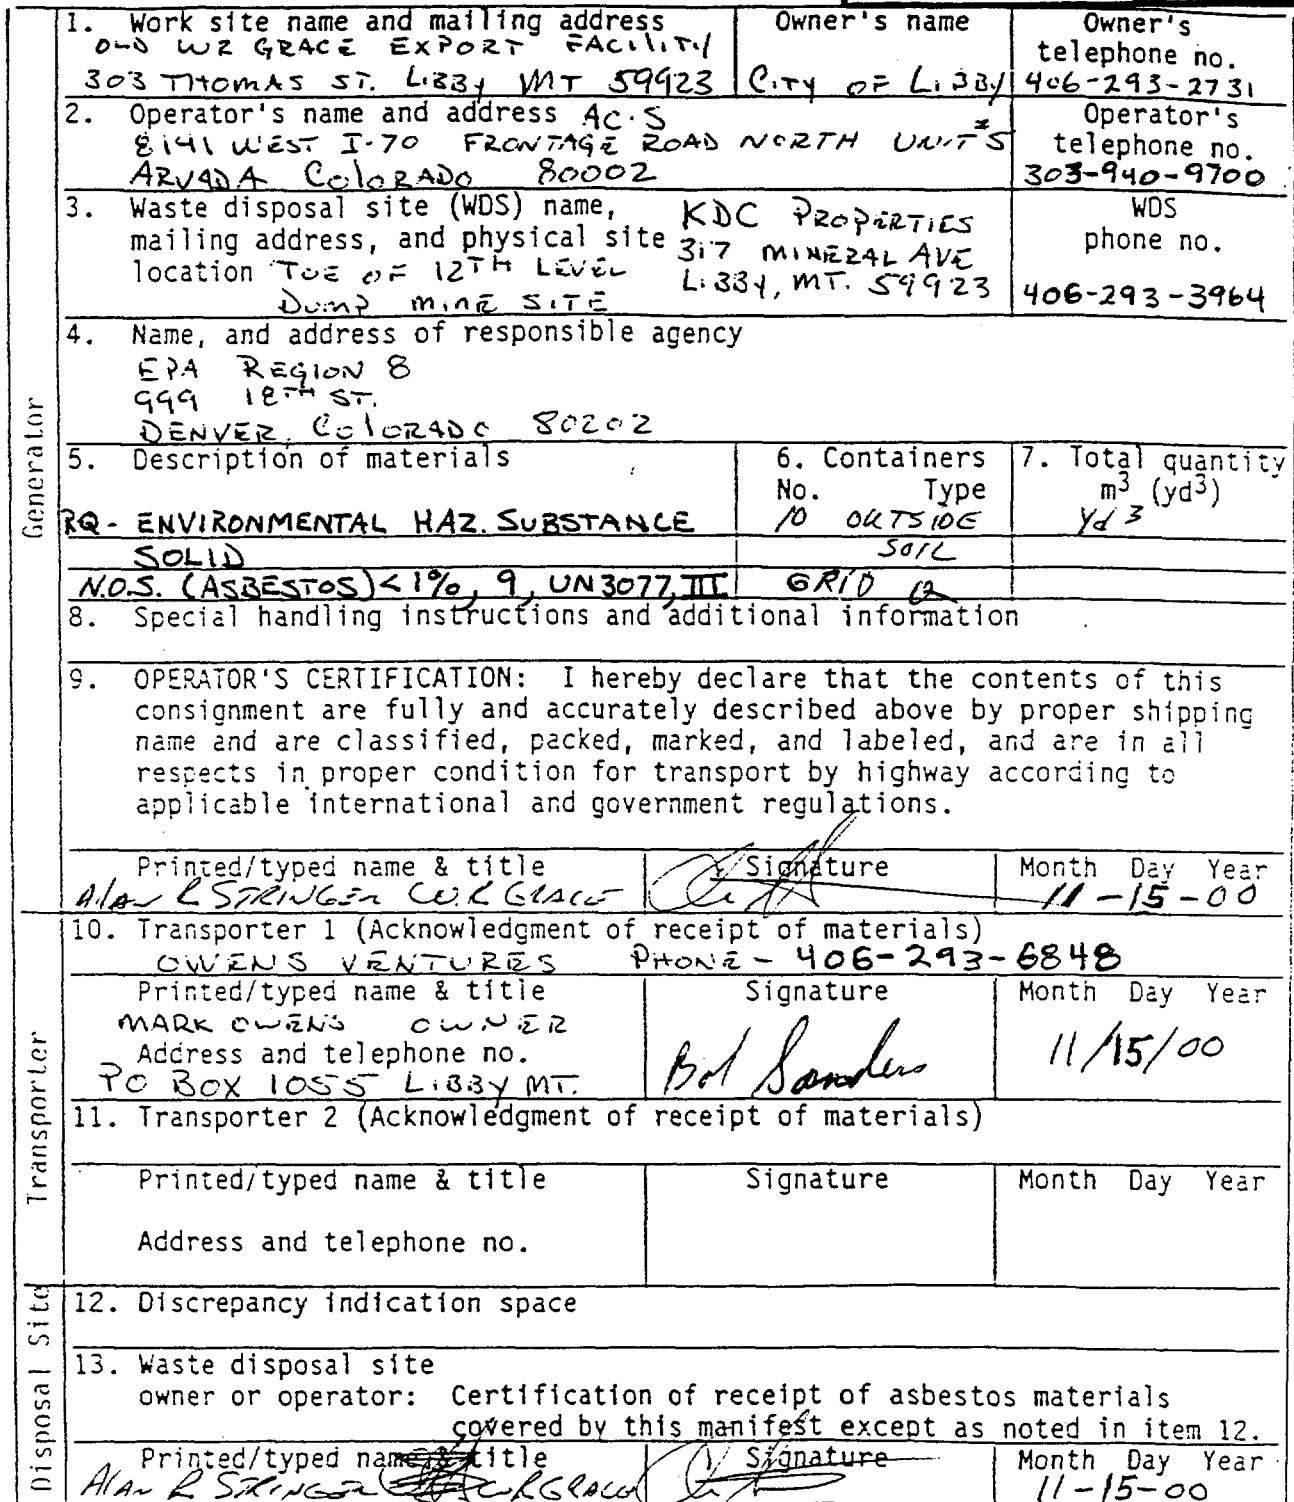 1. Work site name and mailing address
OLD WR GRACE EXPORT FACILITY
303 THOMAS ST. LIBBY MT 59923
Owner's name
CITY OF LIBBY
Owner's
telephone no.
406-293-2731
2. Operator's name and address AC·S
8141 WEST I-70 FRONTAGE ROAD NORTH UNIT #5
ARVADA COLORADO 80002
Operator's
telephone no.
303-940-9700
3. Waste disposal site (WDS) name,
mailing address, and physical site
location TOE OF 12TH LEVEL
DUMP MINE SITE
KDC PROPERTIES
317 MINERAL AVE
LIBBY, MT. 59923
WDS
phone no.
406-293-3964
4. Name, and address of responsible agency
EPA REGION 8
999 18TH ST.
DENVER, COLORADO 80202
Generator
5. Description of materials
RQ - ENVIRONMENTAL HAZ. SUBSTANCE
SOLID
N.O.S. (ASBESTOS) <1%, 9, UN3077, III
6. Containers
No. Type
10 OUTSIDE
SOIL
GRID
7. Total quantity
m3 (yd3)
Yd 3
8. Special handling instructions and additional information
9. OPERATOR'S CERTIFICATION: I hereby declare that the contents of this
consignment are fully and accurately described above by proper shipping
name and are classified, packed, marked, and labeled, and are in all
respects in proper condition for transport by highway according to
applicable international and government regulations.
Printed/typed name & title
Alan R STRINGER W.R GRACE
Signature
Month Day Year
11-15-00
Transporter
10. Transporter 1 (Acknowledgment of receipt of materials)
OWENS VENTURES PHONE - 406-293-6848
Printed/typed name & title
MARK OWENS OWNER
Address and telephone no.
PO BOX 1055 LIBBY MT.
Signature
Bob Sanders
Month Day Year
11/15/00
11. Transporter 2 (Acknowledgment of receipt of materials)
Printed/typed name & title
Address and telephone no.
Signature
Month Day Year
Disposal Site
12. Discrepancy indication space
13. Waste disposal site
owner or operator: Certification of receipt of asbestos materials
covered by this manifest except as noted in item 12.
Printed/typed name & title
Alan R STRINGER W R GRACE
Signature
Month Day Year
11-15-00